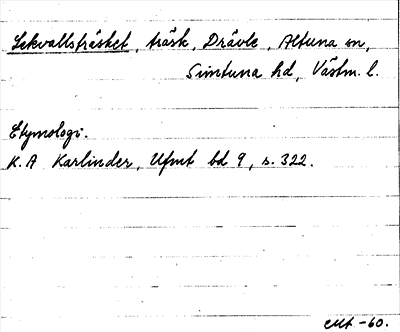 Lekvallsträsket, träsk, Drävle, Altuna sn,
Simtuna hd, Västm. l.
Etymologi.
K. A Karlinder, Ufmt bd 9, s. 322.
-60.